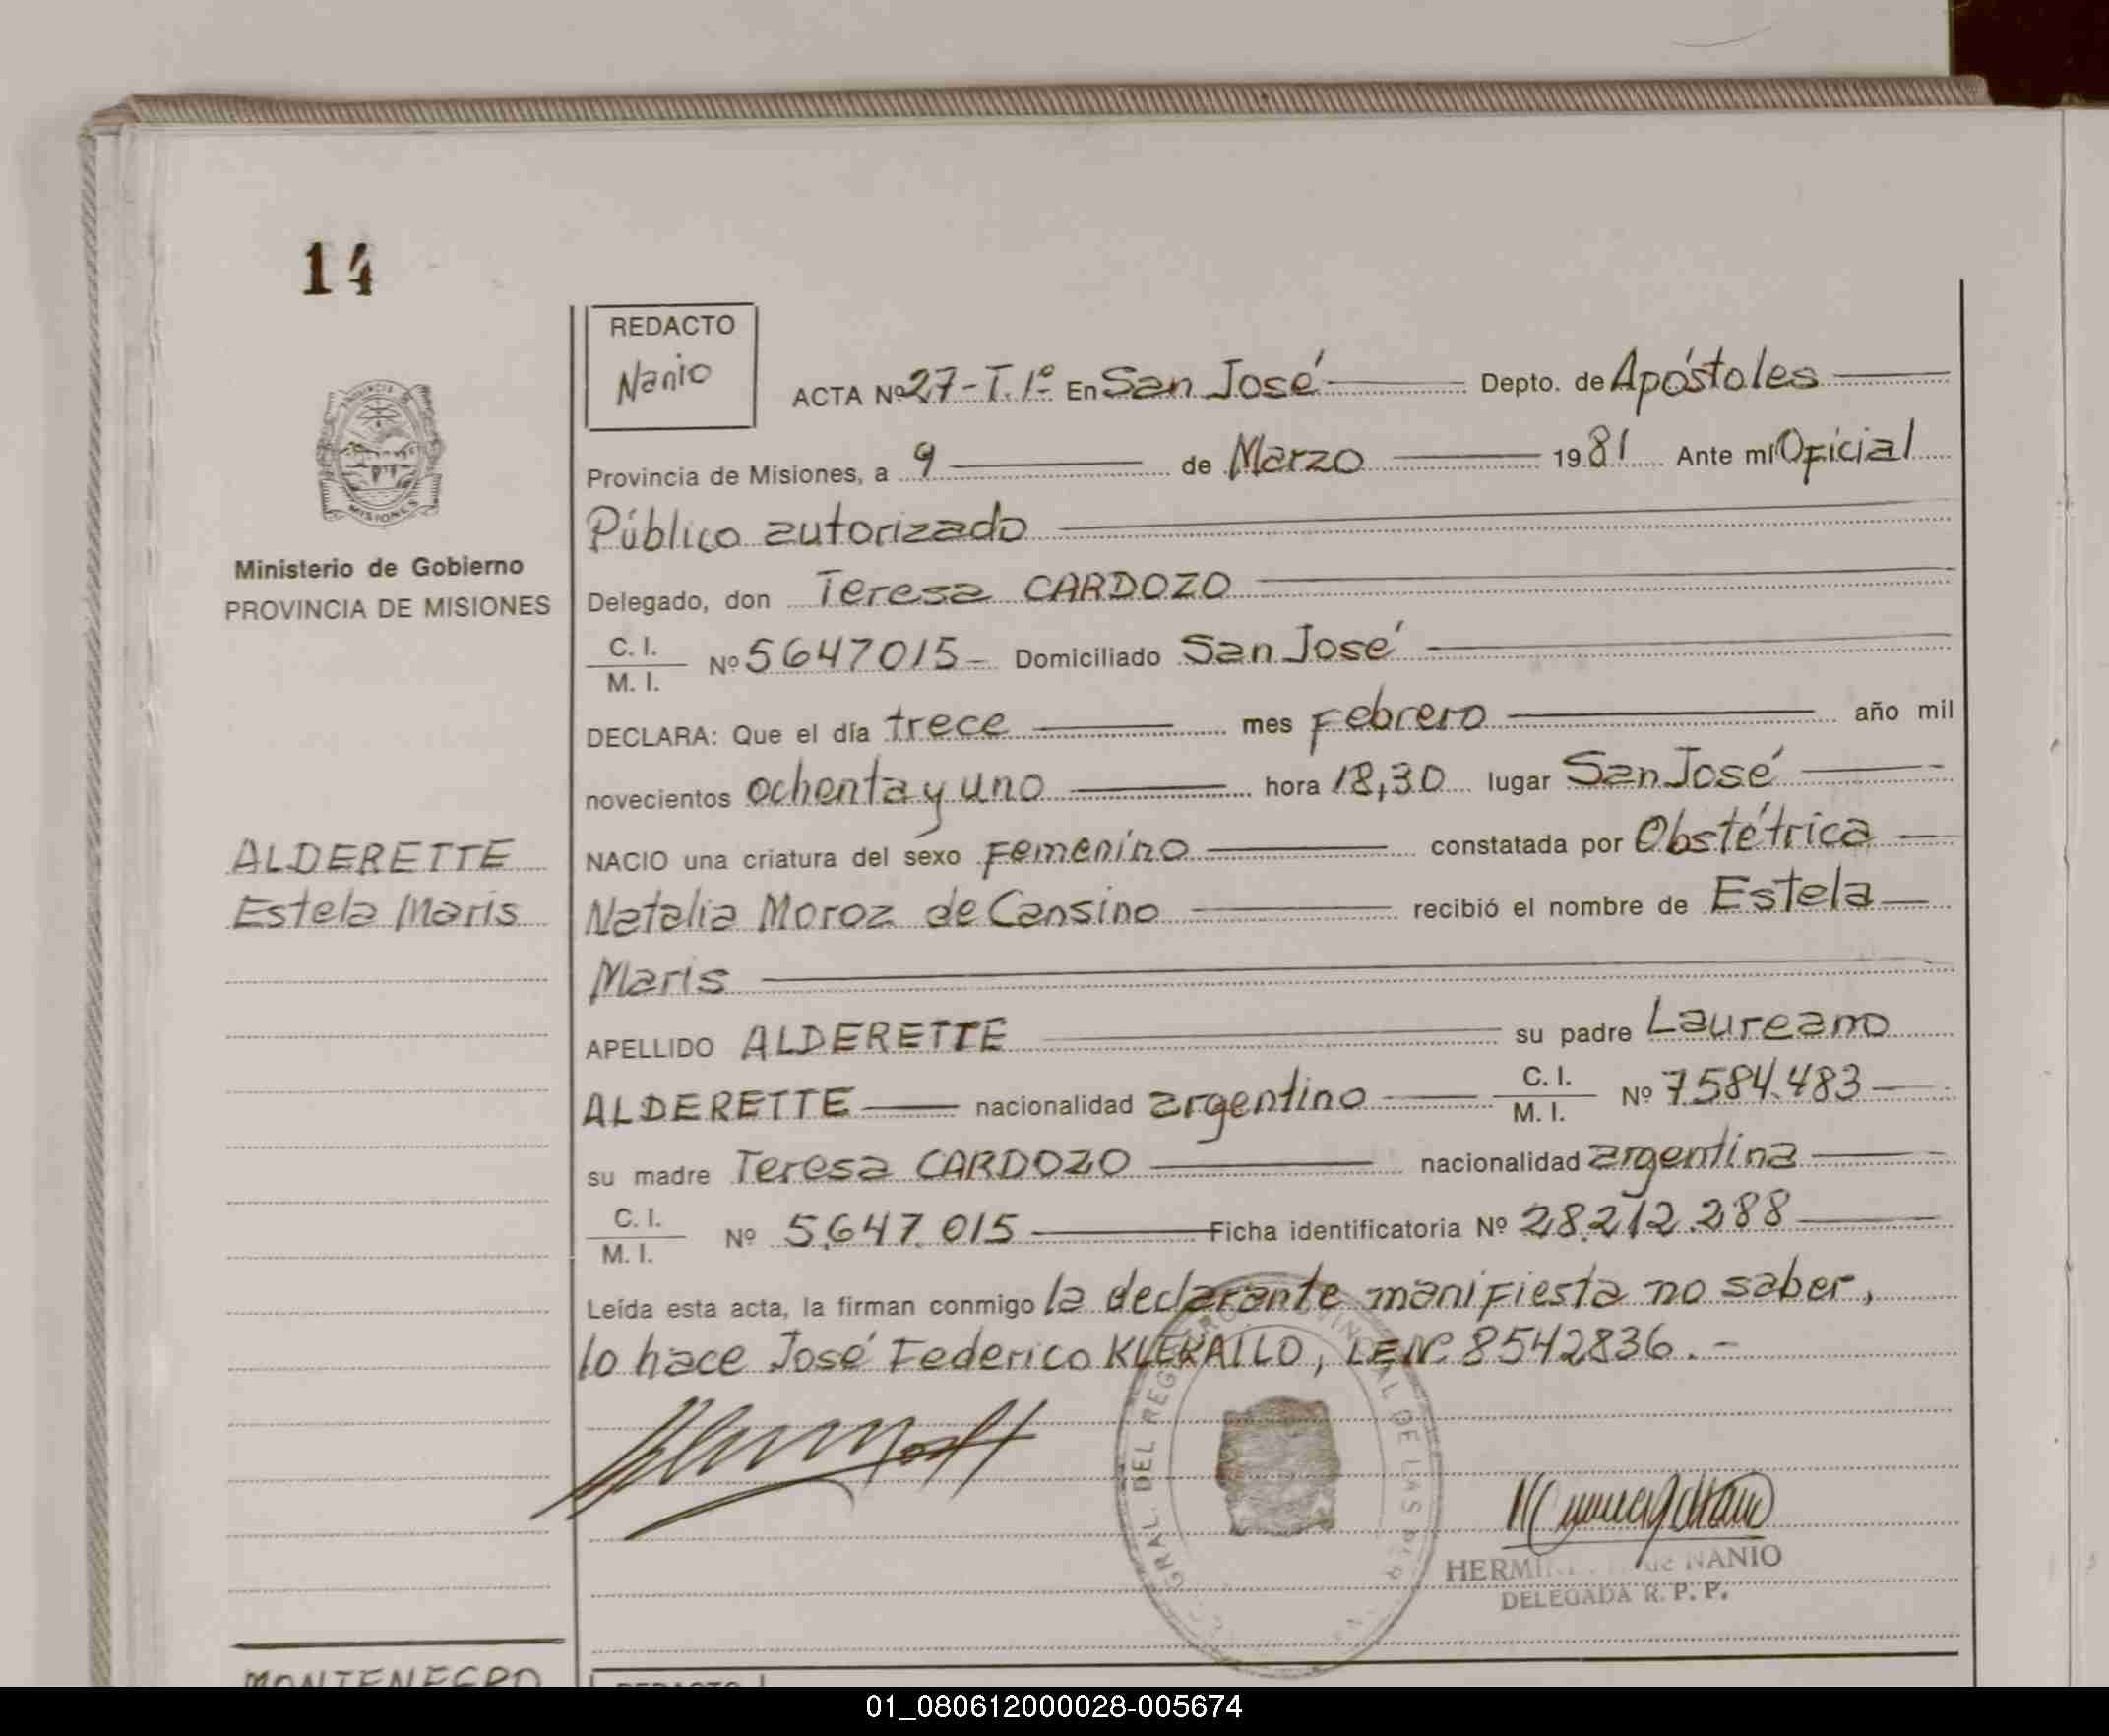 14
REDACTO
Nanio
ACTA Nº 27-T.1º En San José Depto. de Apóstoles
Provincia de Misiones, a 9 de Marzo 1981 Ante mí Oficial
Público autorizado
Ministerio de Gobierno
PROVINCIA DE MISIONES
Delegado, don Teresa CARDOZO
C. I.
M. I. Nº 5647015- Domiciliado San José
DECLARA: Que el día trece mes Febrero año mil
novecientos ochenta y uno hora 18,30 lugar San José
ALDERETTE
Estela Maris
NACIO una criatura del sexo Femenino constatada por Obstétrica
Natalia Moroz de Cansino recibió el nombre de Estela
Maris
APELLIDO ALDERETTE su padre Laureano
ALDERETTE nacionalidad argentino C. I. M. I. Nº 7.584.483
su madre Teresa CARDOZO nacionalidad argentina
C. I.
M. I. Nº 5.647.015 Ficha identificatoria Nº 28.212.288
Leída esta acta, la firman conmigo la declarante manifiesta no saber,
lo hace José Federico KLEKAILO, LENº 8542836.-
GRAL. DEL DE LAS
de NANIO
DELEGADA R. P. P.
MONTENEGRO
REDACTO
01_080612000028-005674